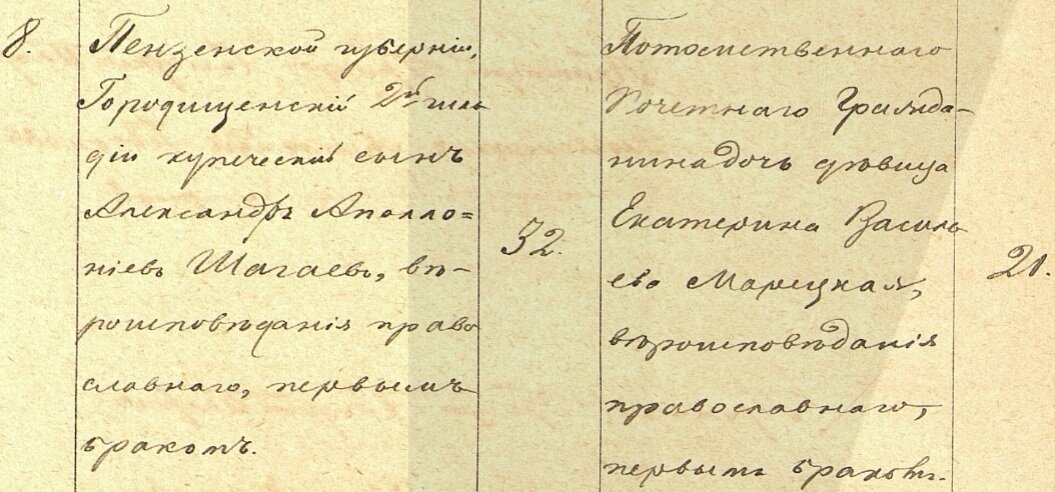 8.
Пензенской губерніи,
Городищенскій 2й гиль
діи купеческій сынъ
Александръ Аполло=
ніевъ Шагаевъ, вѣ-
роисповѣданія право
славнаго, первымъ
бракомъ.
32.
Потомственнаго
Почетнаго Гражда-
нина дочь дѣвица
Екатерина Василь
ева Марецкая,
вѣроисповѣданія
православнаго,
первымъ бракомъ.
21.